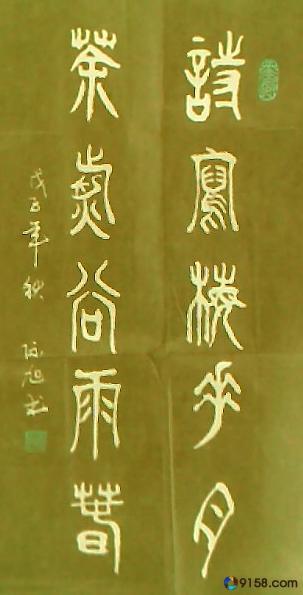 詩寫梅花月
茶煎谷雨春
戊子年秋
9158.com